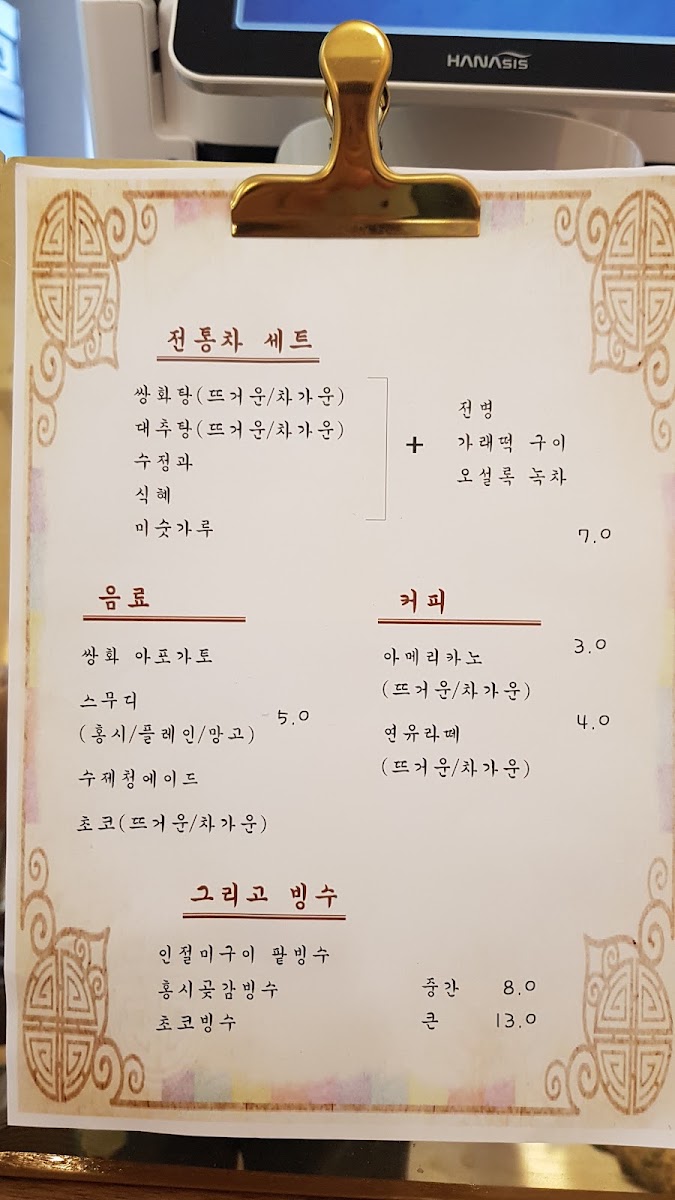 HANAsis
전통차 세트
쌍화탕(뜨거운/차가운)
대추탕(뜨거운/차가운)
수정과
식혜
미숫가루
+
전병
가래떡 구이
오설록 녹차
7.0
음료
쌍화 아포가토
스무디
(홍시/플레인/망고)
5.0
수제청에이드
초코(뜨거운/차가운)
커피
아메리카노 3.0
(뜨거운/차가운)
연유라떼 4.0
(뜨거운/차가운)
그리고 빙수
인절미구이 팥빙수
홍시곶감빙수 중간 8.0
초코빙수 큰 13.0